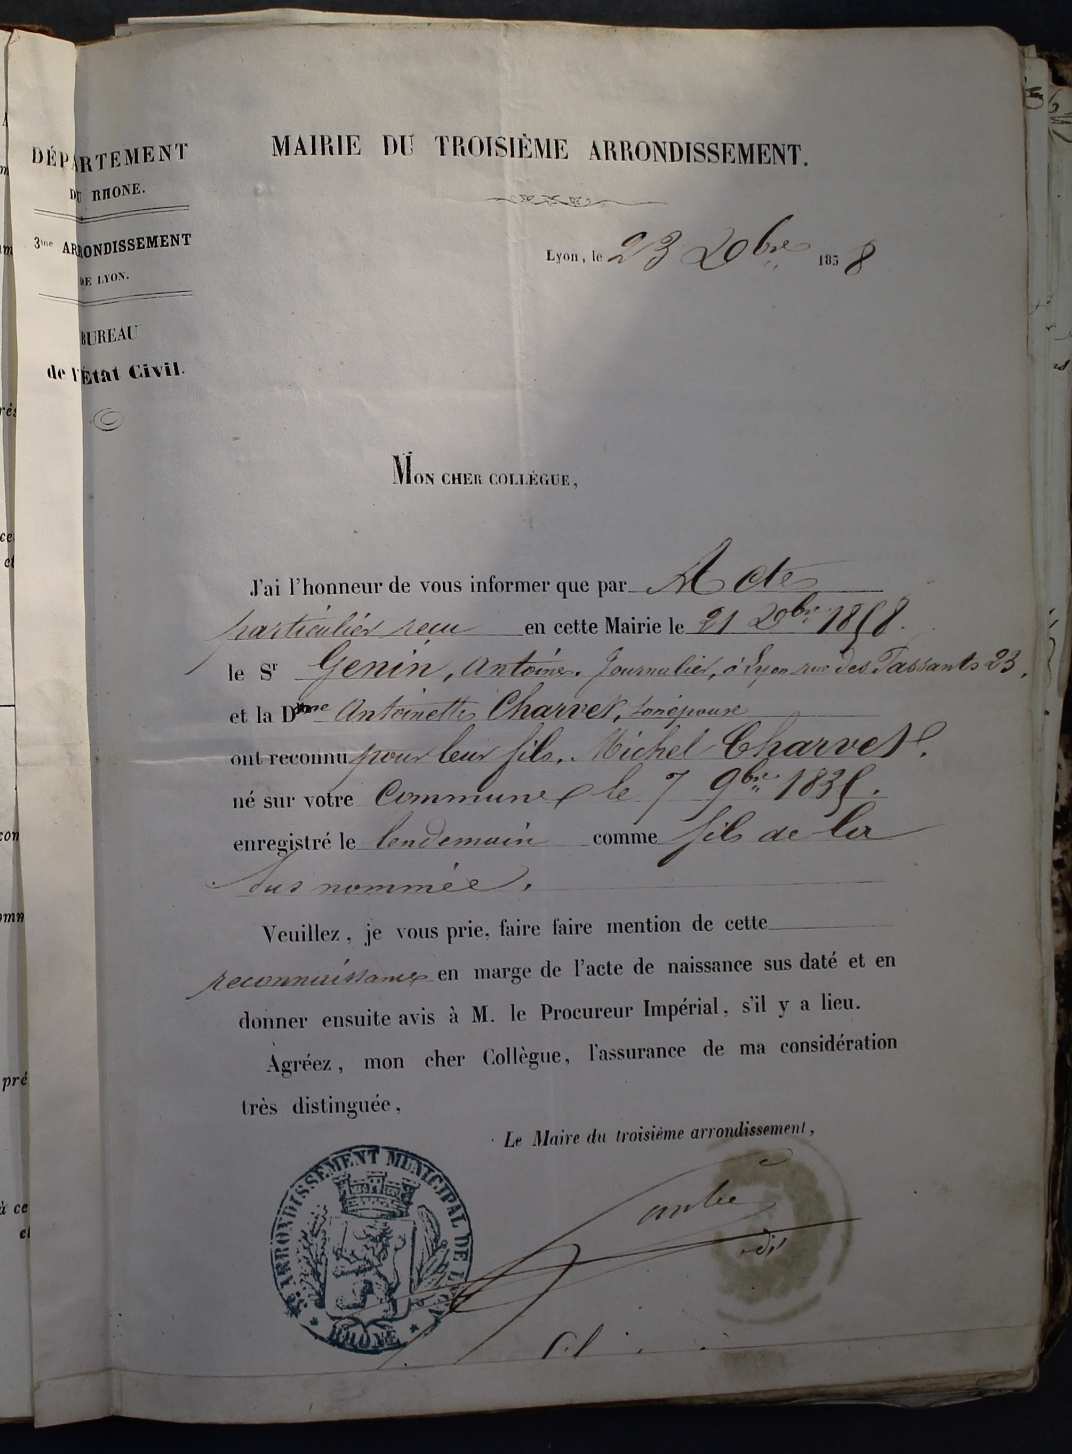 MAIRIE DU TROISIÈME ARRONDISSEMENT.
DÉPARTEMENT
DU RHONE.
3me ARRONDISSEMENT
DE LYON.
BUREAU
de l'État Civil.
Lyon, le 23 Xbre 1858
MON CHER COLLÈGUE,
J'ai l'honneur de vous informer que par Acte
particulier reçu en cette Mairie le 21 Xbre 1858.
le Sr Genin, Antoine. Journalier, à Lyon rue des Passants 23,
et la Dme Antoinette Charvet, son épouse
ont reconnu pour leur fils, Michel Charvet,
né sur votre Commune le 7 9bre 1835.
enregistré le lendemain comme fils de la
sus nommée.
Veuillez, je vous prie, faire faire mention de cette
reconnaissance en marge de l'acte de naissance sus daté et en
donner ensuite avis à M. le Procureur Impérial, s'il y a lieu.
Agréez, mon cher Collègue, l'assurance de ma considération
très distinguée,
Le Maire du troisième arrondissement,
3e ARRONDISSEMENT MUNICIPAL DE LYON
RHÔNE